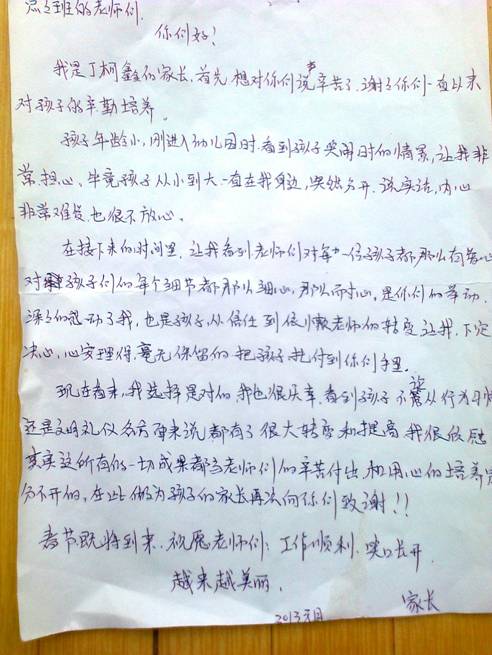 点点班的老师们.
你们好!
我是丁柯鑫的家长,首先想对你们说声辛苦了.谢谢你们一直以来
对孩子的辛勤培养.
孩子年龄小,刚进入幼儿园时.看到孩子哭闹时的情景,让我非
常担心,毕竟孩子从小到大一直在我身边,突然分开.说实话,内心
非常难受也很不放心.
在接下来的时间里.让我看到老师们对每一位孩子都那么有爱心
对孩子们的每个细节都那么细心,那么耐心,是你们的举动.
深深的感动了我,也是孩子,从信任到依赖老师的转变让我,下定
决心,心安理得,毫无保留的把孩子托付到你们手里.
现在看来,我选择是对的,我也很庆幸.看到孩子不管从行为习惯
还是文明礼仪各方面来说都有了很大转变和提高我很欣慰
其实这所有的一切成果都与老师们的辛苦付出和用心的培养是
分不开的,在此做为孩子的家长再次向你们致谢!!
春节既将到来.祝愿老师们:工作顺利.笑口长开
越来越美丽.
家长
2013元月